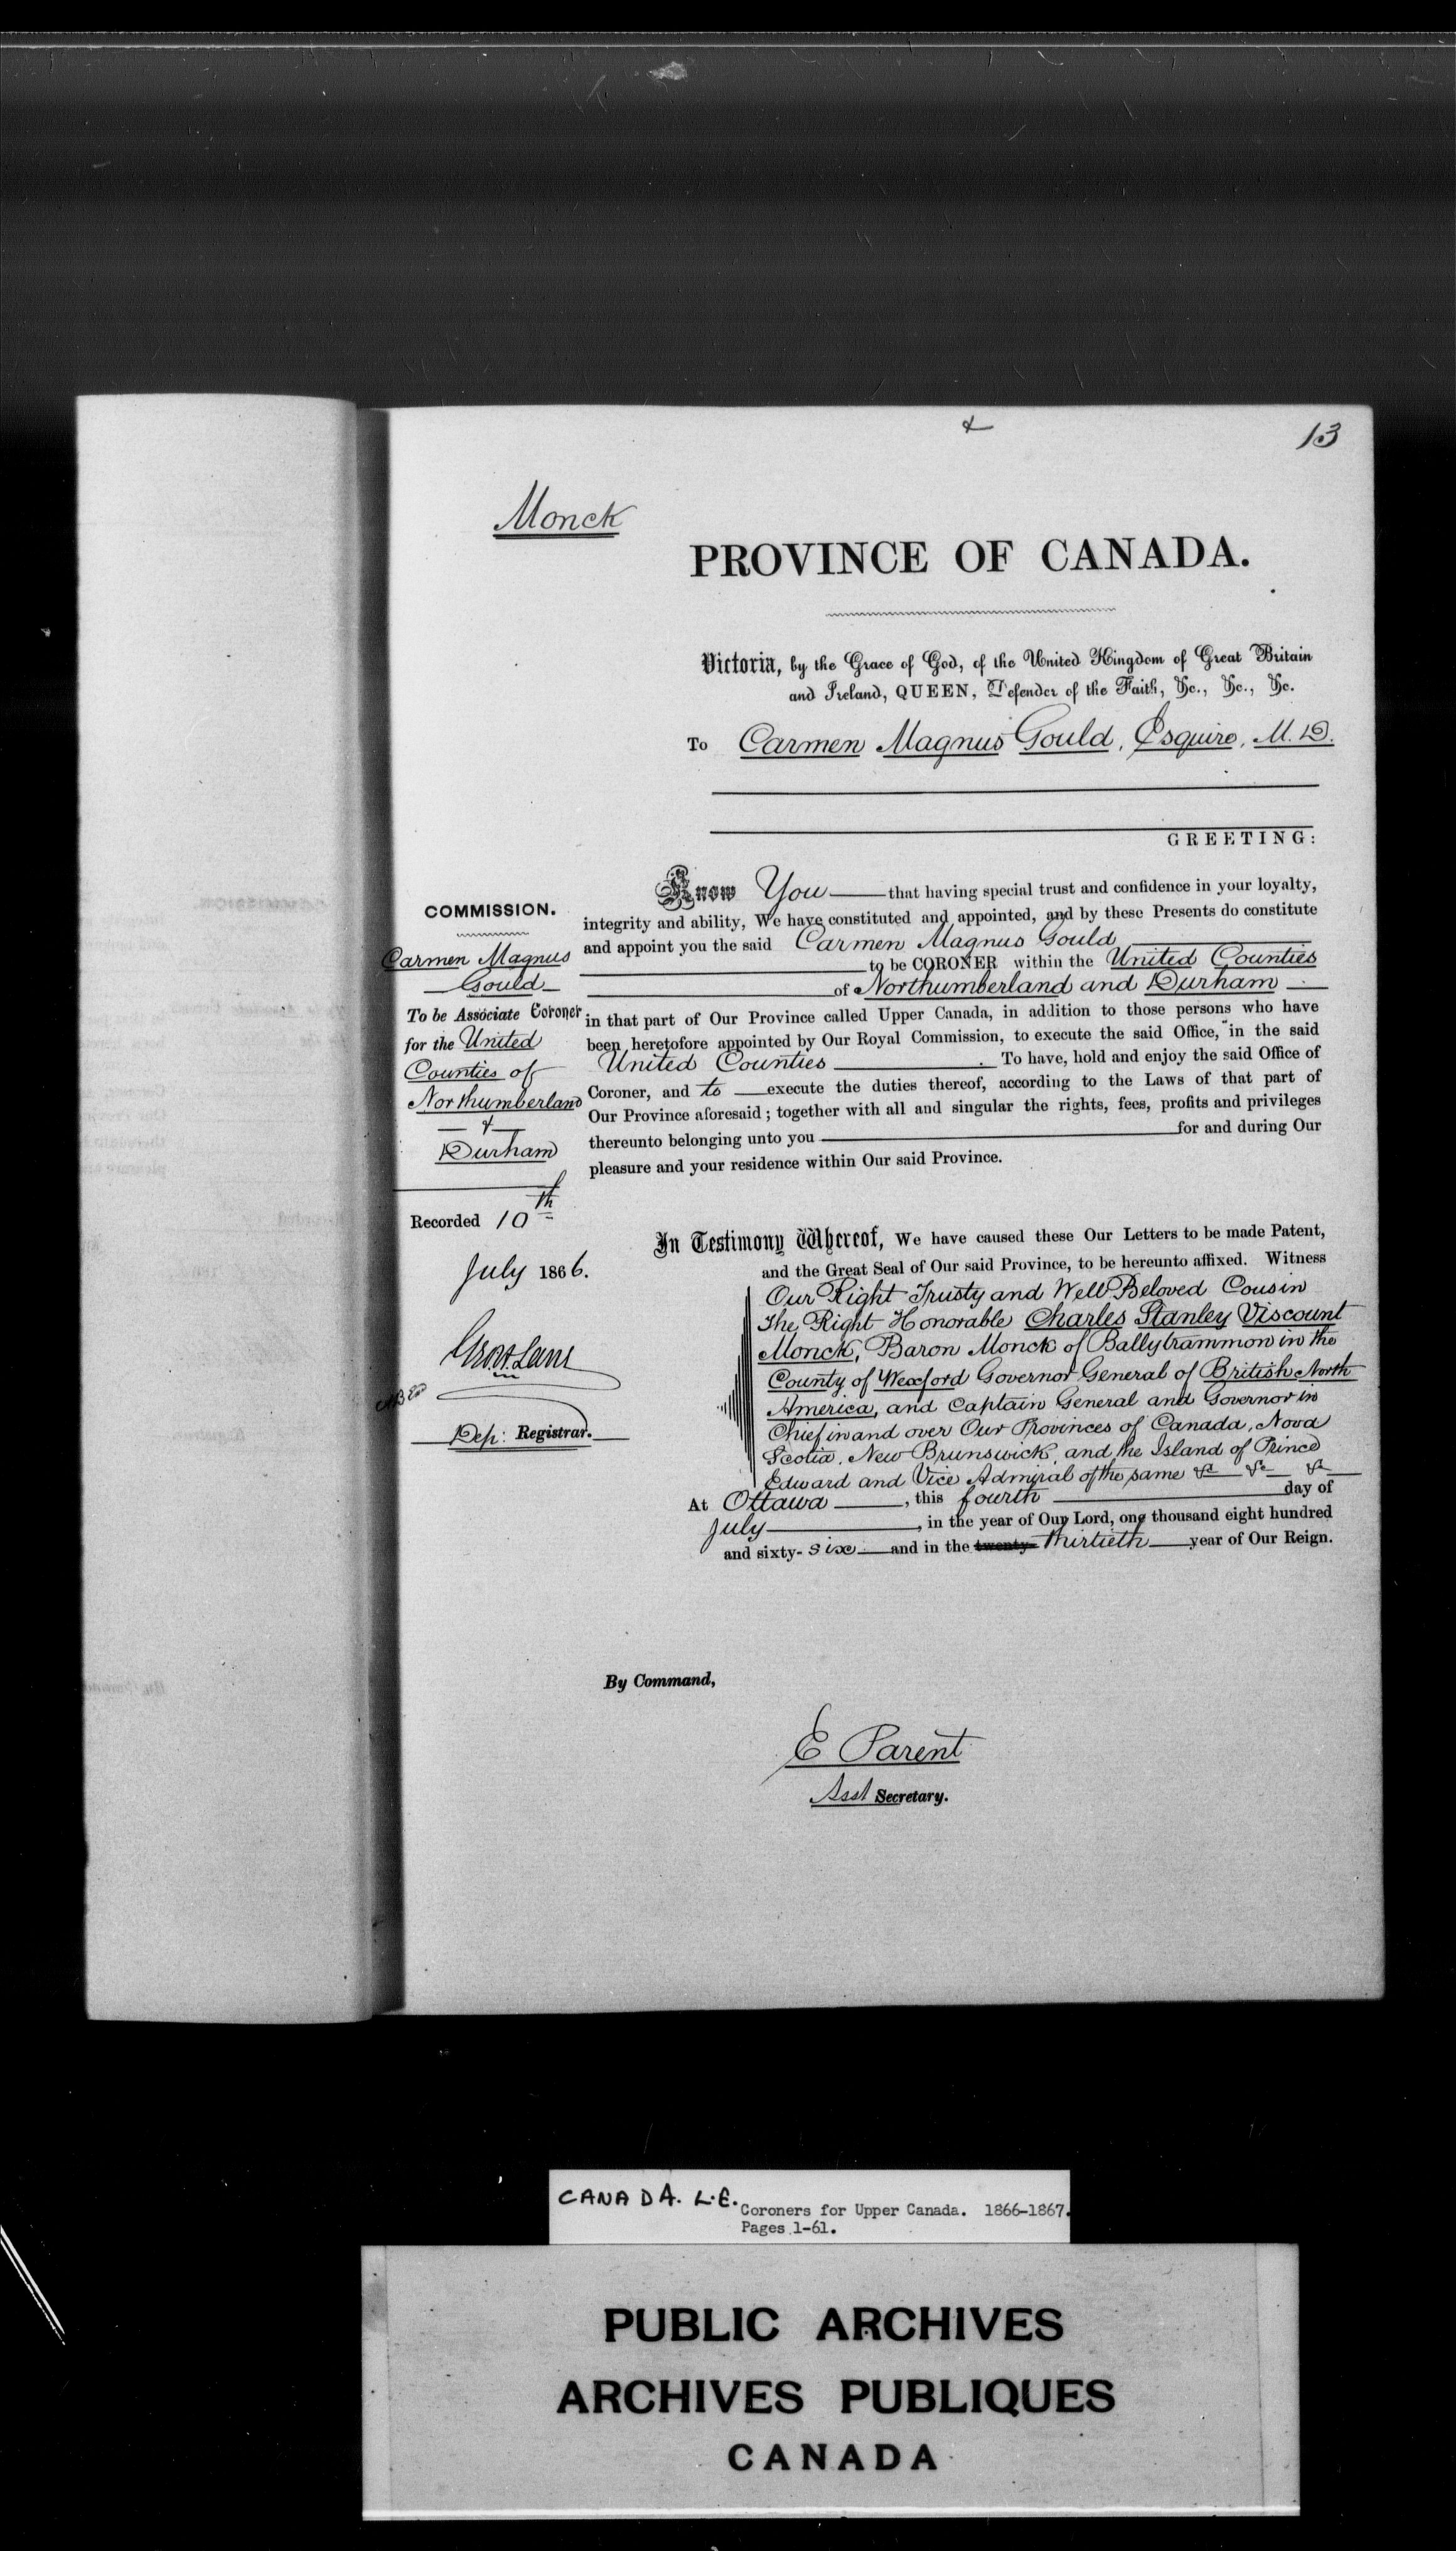 &
13
Monck
PROVINCE OF CANADA.
Victoria, by the Grace of God, of the United Kingdom of Great Britain
and Ireland, QUEEN, Defender of the Faith, &c., &c., &c.
To Carmen Magnus Gould, Esquire, M.D.
GREETING:
COMMISSION.
Carmen Magnus
Gould
To be Associate Coroner
for the United
Counties of
Northumberland
&
Durham
Recorded 10th
July 1866.
Dep: Registrar.
Know You that having special trust and confidence in your loyalty,
integrity and ability, We have constituted and appointed, and by these Presents do constitute
and appoint you the said Carmen Magnus Gould
to be CORONER within the United Counties
of Northumberland and Durham
in that part of Our Province called Upper Canada, in addition to those persons who have
been heretofore appointed by Our Royal Commission, to execute the said Office, in the said
United Counties. To have, hold and enjoy the said Office of
Coroner, and to execute the duties thereof, according to the Laws of that part of
Our Province aforesaid; together with all and singular the rights, fees, profits and privileges
thereunto belonging unto you for and during Our
pleasure and your residence within Our said Province.
In Testimony Whereof, We have caused these Our Letters to be made Patent,
and the Great Seal of Our said Province, to be hereunto affixed. Witness
Our Right Trusty and Well Beloved Cousin
The Right Honorable Charles Stanley Viscount
Monck, Baron Monck of Ballytrammon in the
County of Wexford Governor General of British North
America, and Captain General and Governor in
Chief in and over Our Provinces of Canada, Nova
Scotia, New Brunswick, and the Island of Prince
Edward and Vice Admiral of the same &c &c &c
At Ottawa, this fourth day of
July, in the year of Our Lord, one thousand eight hundred
and sixty-six and in the twenty- thirtieth year of Our Reign.
By Command,
E Parent
Asst Secretary.
CANADA. L.E.
Coroners for Upper Canada. 1866-1867.
Pages 1-61.
PUBLIC ARCHIVES
ARCHIVES PUBLIQUES
CANADA